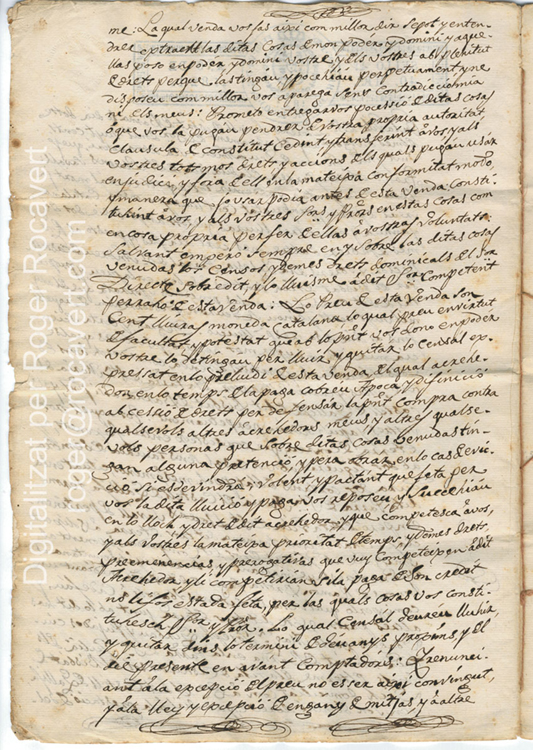 me: La qual venda vos fas aixi com millor dir se pot y enten-
drer extraent las ditas Cosas de mon poder, y domini y aque-
llas poso en poder, y domini vostre y dels vostres ab plenitut
de drets perque las tingau, y possehiau perpetuament y ne
disposeu com millor vos aparega sens Contradiccio mia
ni dels meus: Prometo entregarvos possessió de ditas cosas
ò que vos la pugau pendrer de vostra propria autoritat,
Clausula de Constitut Cedint, y transferint à vos, y als
vostres tots mos drets, y accions dels quals pugau usar
en judici, y fora de ell en la mateixa conformitat modo,
y manera que jo usar podia antes de esta venda Consti-
tuhint à vos, y als vostres Sors y Prors en estas Cosas com
en cosa propria per fer de ellas à vostras voluntats
Salvant empero sempre en, y sobre las ditas cosas
venudas los Censos, y demes drets dominicals del Sor
Directe sobredit, y lo lluisme à dit Sor Competent
per rahó de esta venda: Lo Preu de esta venda son
Cent lliuras moneda Catalana lo qual preu en virtut
de facultat, y potestat que ab lo pnt vos dono en poder
vostre lo detingau per lluir, y quitar lo Censal ex-
pressat en lo preludi de esta venda del qual acrehe-
dor en lo temps de la paga cobreu Apoca, y difinició
ab cessió de drets per defensar la pnt compra contra
qualsevols altres acrehedors meus y altres qualse-
vols personas que sobre ditas cosas venudas tin-
gan alguna pretenció, y pera obrar en lo cas de evic-
ció si esdevindra: volent, y pactant que feta per
vos la dita lluició, y paga vos reposeu y Succehiau
en lo lloch, y dret de dit acrehedor, y que competesca à vos,
y als vostres la mateixa prioritat de temps, y demes drets,
preeminencias, y prerogativas que vuy Competeixen à dit
Acrehedor, y li competirian si la paga de son credit
no li fos estada feta, per las quals cosas vos consti-
tuesch Pror y Pror. Lo qual Censal deureu lluhir
y quitar dins lo termini de dos anys propvns, y del
die present en avant Comptadors: Y renunci-
ant à la excepció del preu no esser aixi convingut,
y à la lley, y excepció de engany de mitjas, y à altre
Digitalitzat per Roger Rocavert
roger@rocavert.com